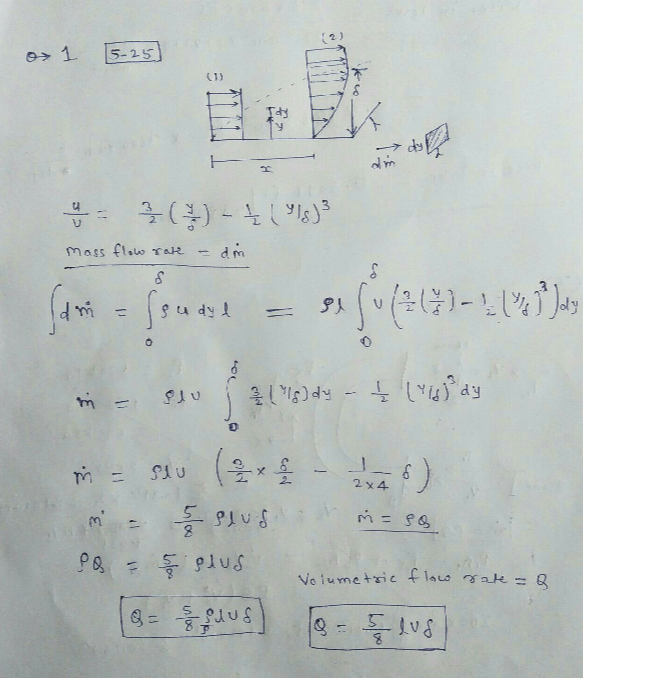 Q→ 1 5-25
(1)
(2)
dy
y
δ
x
l
dṁ
dy
l
u/U = 3/2 (y/δ) - 1/2 (y/δ)³
Mass flow rate = dṁ
∫dṁ = ∫₀^δ ρ u dy l = ρl ∫₀^δ U (3/2 (y/δ) - 1/2 (y/δ)³) dy
ṁ = ρlU ∫₀^δ 3/2 (y/δ) dy - 1/2 (y/δ)³ dy
ṁ = ρlU (3/2 × δ/2 - 1/2×4 δ)
ṁ = 5/8 ρlUδ ṁ = ρQ
ρQ = 5/8 ρlUδ
Volumetric flow rate = Q
Q = 5/8ρ ρlUδ Q = 5/8 lUδ